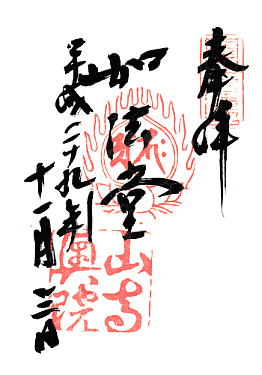 奉拝
如法堂
平成二十九年
十一月三日
山寺
奥院